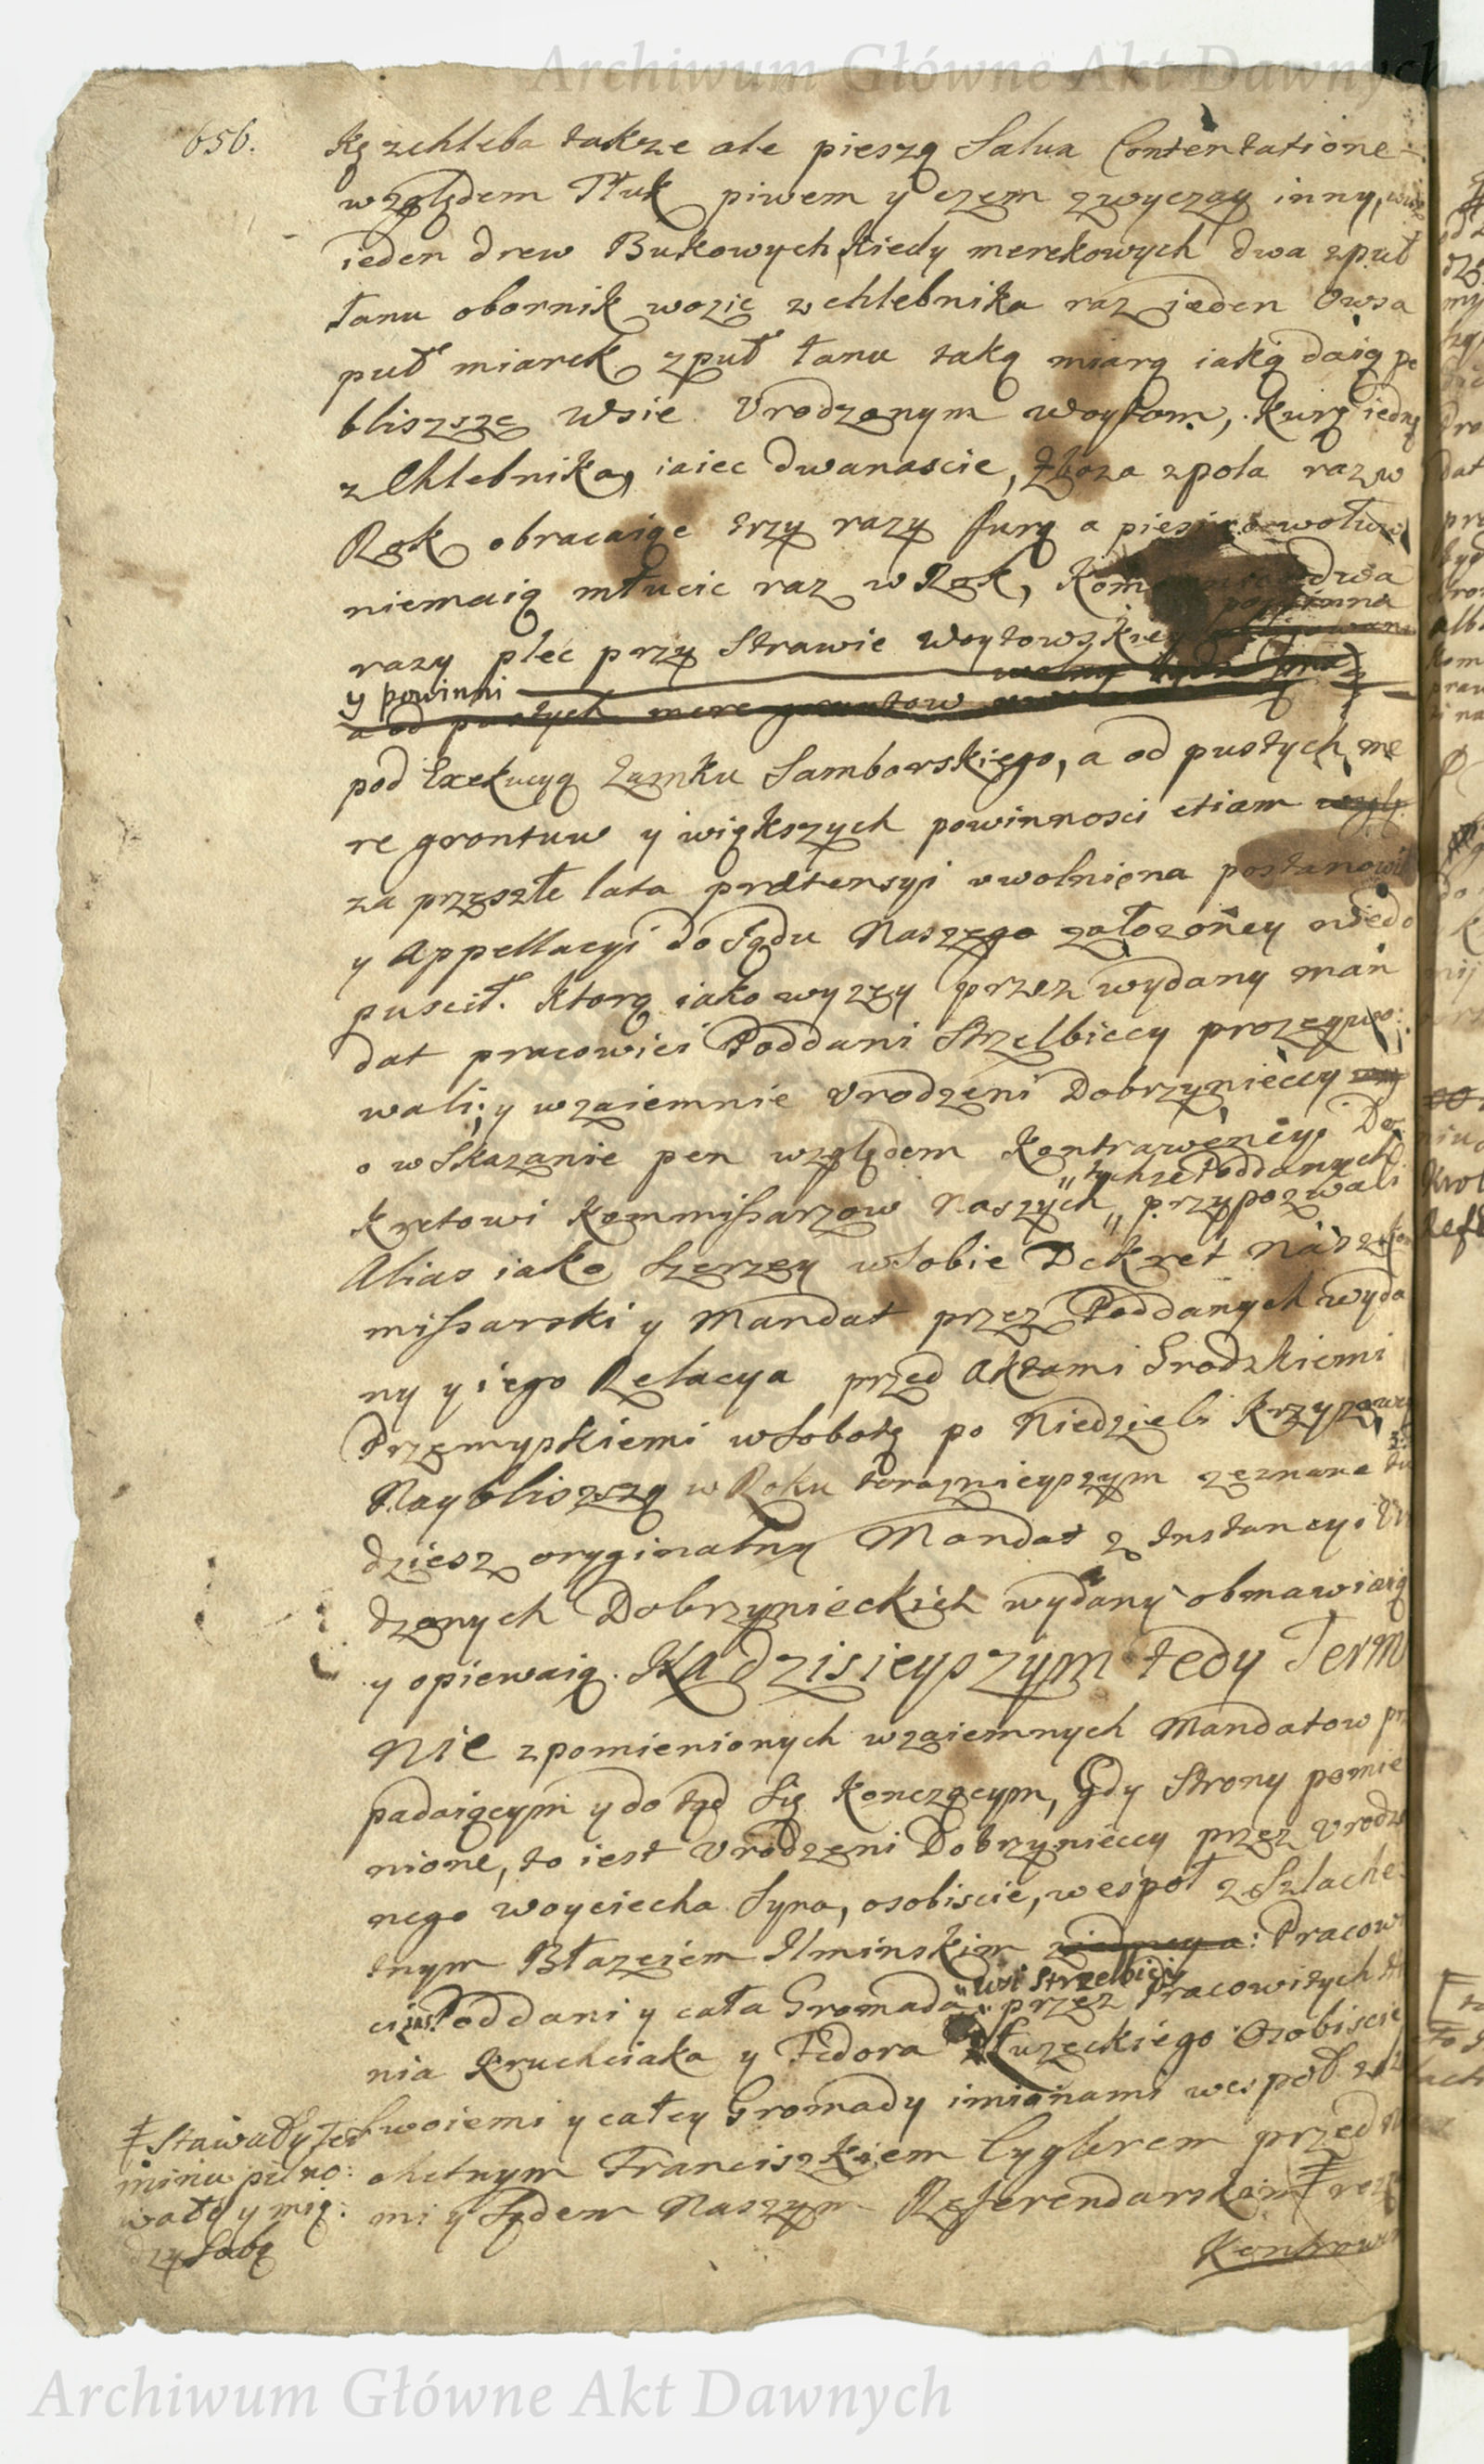 Archiwum Główne Akt Dawnych
656.
kę zchleba takze ale pieszą Salva Contentatione
względem Tłuk piwem y czem zwyczay inny,
ieden drew Bukowych, kiedy merekowych dwa zpuł
łanu obornik wozic z chlebnika raz ieden Owsa
puł miarek zpuł łanu taką miarą iaką daią po
bliszsze wsie Urodzonym woytom, kurę iedną
z Chlebnika, iaiec dwanascie, Zboza zpola raz w
Rok obracaiąc trzy razy furą a pieszo wołuw
niemaią młucic raz w Rok, dwa
razy plec przy Strawie Woytowskiey
y powinni
a od pustych mere gruntow
pod Exekucyą Zamku Samborskiego, a od pustych me
re grontuw y większych powinnosci etiam
za przyszłe lata prætensyi uwolniona postanowił
y Appellacyi do Sądu Naszego załozoney niedo
puscił. Ktorą iako wyzzy przez wydany man
dat pracowici Poddani Strzelbiccy prozequo:
wali; y wzaiemnie Urodzeni Dobrzynieccy
o wskazanie pen względem Kontrawencyi De
" tychze Poddanych
kretowi Kommissarzow Naszych " przypozwali
Alias iako szerzey w sobie Dekret Nasz Ko
missarski y Mandat przez Poddanych wyda
ny y iego Relacya przed Aktami Grodzkiemi
Przemyskiemi w Sobotę po Niedzieli Krzyzowey
Naybliszszą w Roku teraznieyszym zeznana tu
dziesz oryginalny Mandat z Instancyi Uro
dzonych Dobrzynieckich wydany obmawiaią
y opiewaią. Na dzisieyszym tedy Term
nie zpomienionych wzaiemnych Mandatow pr
padaiącym y do tąd się konczącym, Gdy Strony pomie
nione, to iest Urodzeni Dobrzynieccy przez Urodzo
nego Woyciecha Syna, osobiscie, wespoł z Szlache
tnym Błazeiem Ilminskim Pracow
" wsi Strzelbicy
ci zas Poddani y cała Gromada " przez Pracowitych
nia Kruchciaka y Fedora Łuzeckiego Osobiscie
swoiemi y całey Gromady imionami wespoł z Sz
chetnym Franciszkiem Cyglerem przed
mi y Sądem Naszym Referendarskim ‡
‡ Stawały Ter
minu pilno:
wały y mię:
dzy Sobą
Kontrow
Archiwum Główne Akt Dawnych